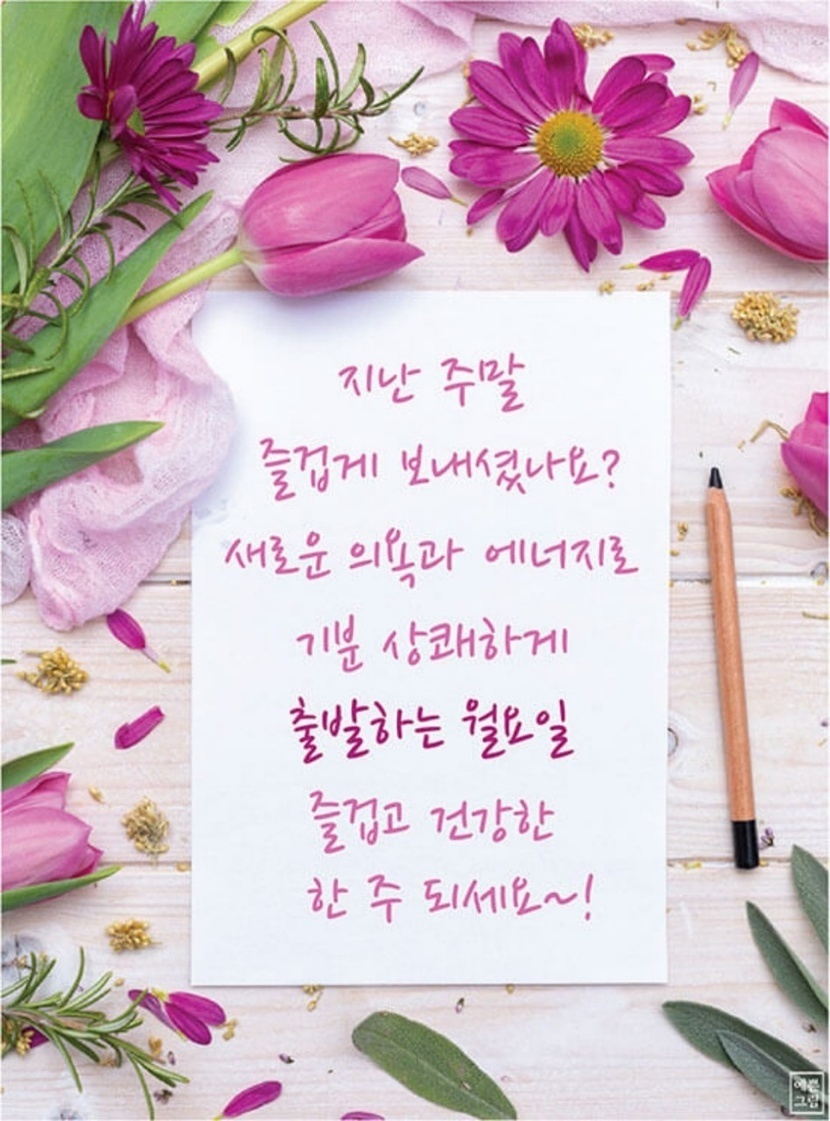 지난 주말
즐겁게 보내셨나요?
새로운 의욕과 에너지로
기분 상쾌하게
출발하는 월요일
즐겁고 건강한
한 주 되세요~!
예쁜
그림